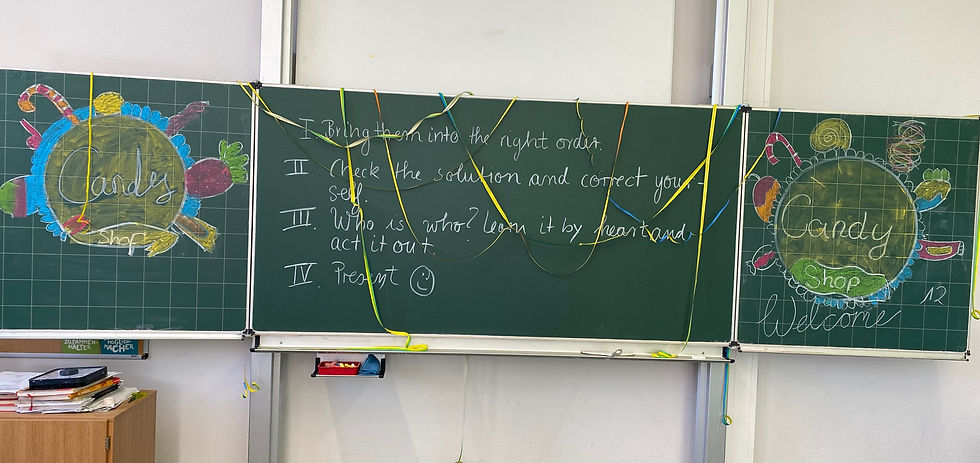 Candy
Shop
I. Bring them into the right order.
II Check the solution and correct your-
self.
III. Who is who? Learn it by heart and
act it out.
IV. Present
Candy
Shop
12
Welcome
ZUSAMMEN-
HALTER
MÖGLICH
MACHER